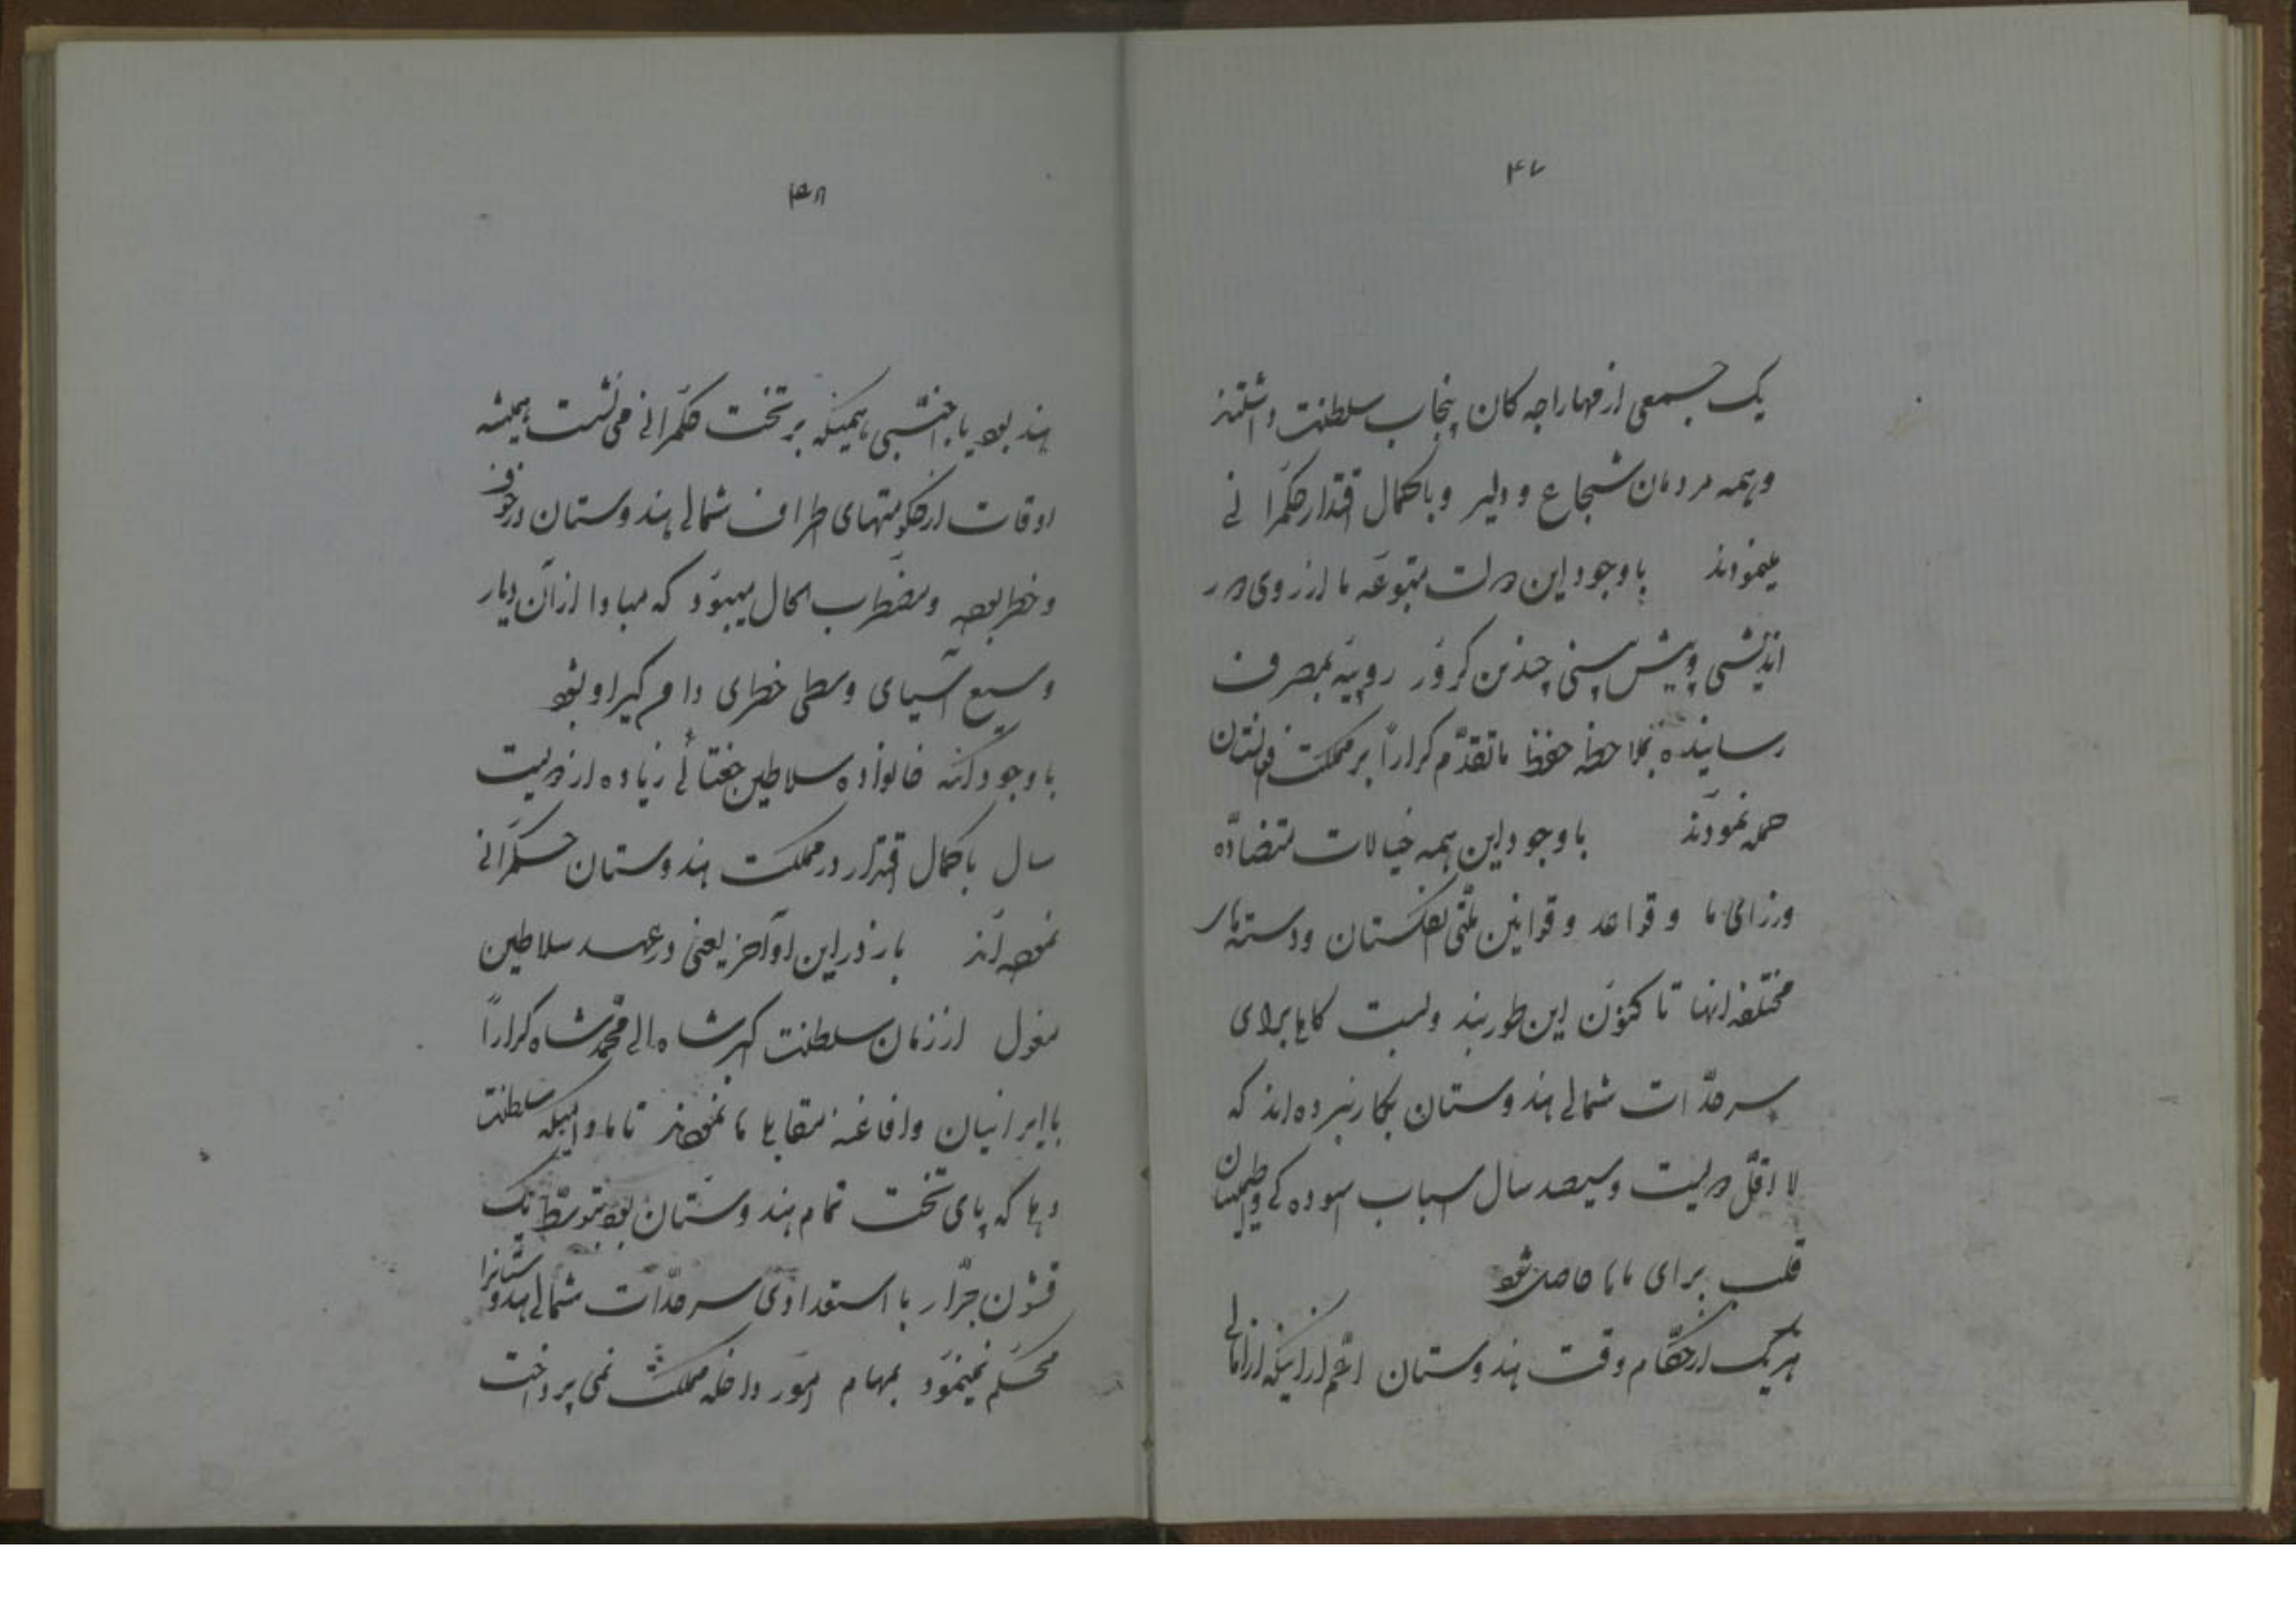 ۴۷
یک جمعی از مهاراجه کان پنجاب سلطنت داشتند
و همه مردمان شجاع و دلیر و با کمال اقتدار حکمرانی
مینمودند با وجود این دولت متبوعه ما از روی دور
اندیشی و پیش بینی چندین کرور روپیه بمصرف
رسانیده بملاحظه حفظ ماتقدّم کراراً بر مملکت افغانستان
حمله نمودند با وجود این همه خیالات متضادّه
وزرای ما و قواعد و قوانین ملتی انگلستان و دسته های
مختلفه انها تا کنون این طور بند و بست کاملی برای
سرحدّات شمالی هندوستان بکار نبرده اند که
لا اقلّ دویست و سیصد سال اسباب اسوده کی و اطمینان
قلب برای ماها حاصل شود
هر یک از حکّام وقت هندوستان اعّم از اینکه از اهالی
۴۸
هند بود یا اجنبی همینکه بر تخت حکمرانی می نشست همیشه
اوقات از حکومتهای اطراف شمالی هندوستان در خوف
و خطر بوده و مضطرب الحال میبود که مبادا از آن دیار
وسیع آسیای وسطی خطری دامن گیر او بشود
با وجود آنکه خانواده سلاطین جغتائی زیاده از دویست
سال با کمال اقتدار در مملکت هندوستان حکمرانی
نموده اند باز در این اواخر یعنی در عهد سلاطین
مغول از زمان سلطنت اکبر شاه الی محمّد شاه کراراً
با ایرانیان و افاغنه مقابله ها نمودند تا مادامیکه سلطنت
دهلی که پای تخت تمام هندوستان بود بتوسّط یک
قشون جرّار با استعدادی سرحدّات شمالی هندوستانرا
محکم نمینمود بمهام امور داخله مملکت نمی پرداخت